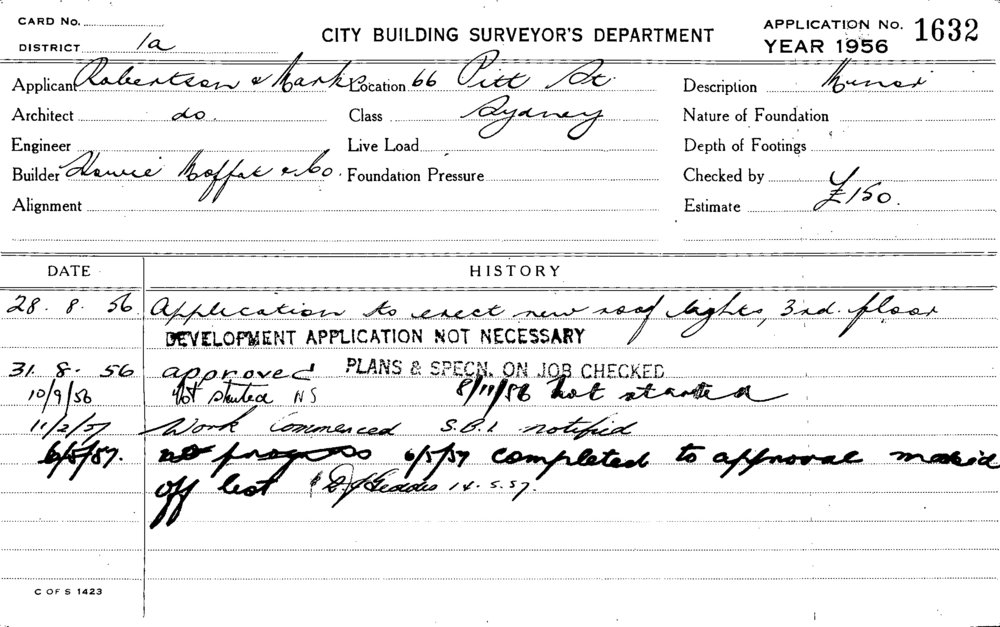 CARD No.
DISTRICT 1a
CITY BUILDING SURVEYOR'S DEPARTMENT
APPLICATION No. 1632
YEAR 1956
Applicant Robertson & Marks Location 66 Pitt St. Description Minor
Architect do. Class Sydney Nature of Foundation
Engineer Live Load Depth of Footings
Builder Howie Moffat & Co. Foundation Pressure Checked by
Alignment Estimate £150.
DATE HISTORY
28. 8. 56. Application to erect new roof lights, 3rd. floor
DEVELOPMENT APPLICATION NOT NECESSARY
31. 8. 56 approved PLANS & SPECN. ON JOB CHECKED
10/9/56 Not started NS 8/11/56 Not started
11/2/57 Work commenced S.B.I. notified
6/5/57. no progress 6/5/57 completed to approval marked
off list D J Geddes 14.5.57.
C OF S 1423